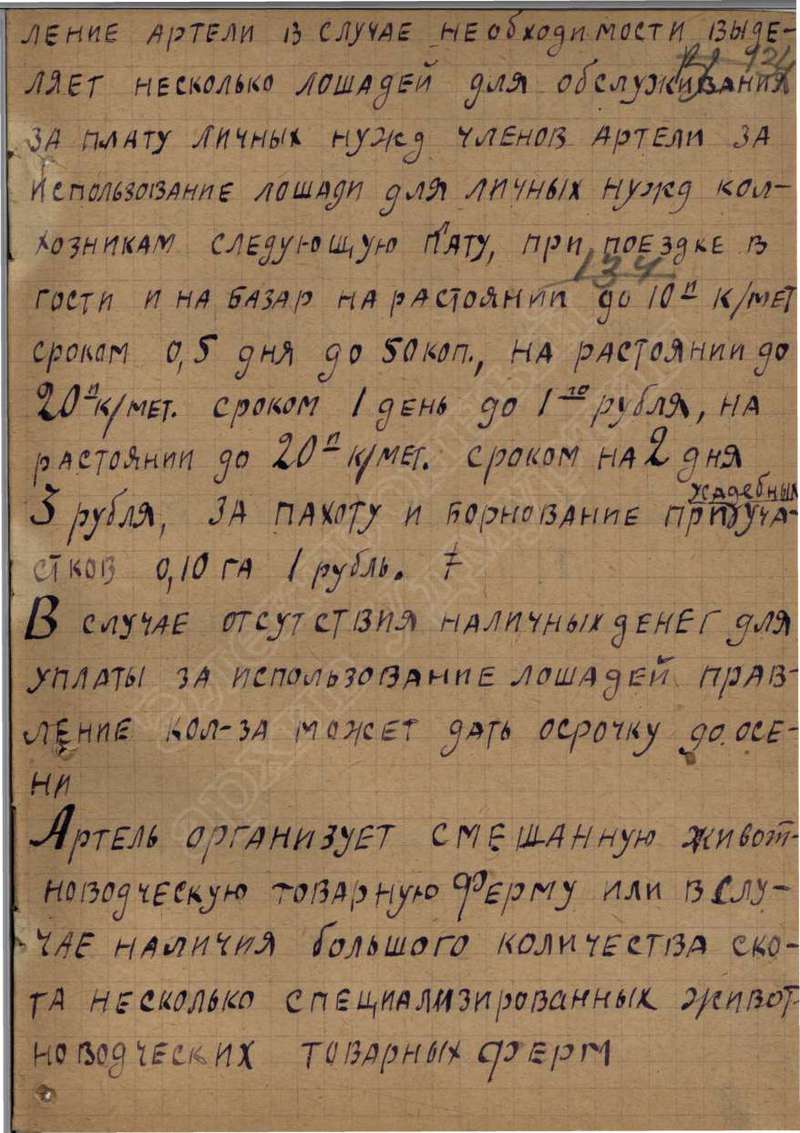 ЛЕНИЕ АРТЕЛИ В СЛУЧАЕ НЕОБХОДИМОСТИ ВЫДЕ-
ЛЯЕТ НЕСКОЛЬКО ЛОШАДЕЙ ДЛЯ ОБСЛУЖИВАНИЯ
ЗА ПЛАТУ ЛИЧНЫХ НУЖД ЧЛЕНОВ АРТЕЛИ ЗА
ИСПОЛЬЗОВАНИЕ ЛОШАДИ ДЛЯ ЛИЧНЫХ НУЖД КОЛ-
ХОЗНИКАМ СЛЕДУЮЩУЮ ПЛАТУ, ПРИ ПОЕЗДКЕ В
134
ГОСТИ И НА БАЗАР НА РАСТОЯНИИ ДО 10 П К/МЕТ
СРОКОМ 0,5 ДНЯ ДО 50 КОП., НА РАСТОЯНИИ ДО
20 П К/МЕТ. СРОКОМ 1 ДЕНЬ ДО 1 РУБЛЯ, НА
РАСТОЯНИИ ДО 20 П К/МЕТ. СРОКОМ НА 2 ДНЯ
3 РУБЛЯ, ЗА ПАХОТУ И БОРНОВАНИЕ ПРИУСАДЕБНЫХ УЧА-
СТКОВ 0,10 ГА 1 РУБЛЬ.
В СЛУЧАЕ ОТСУТСТВИЯ НАЛИЧНЫХ ДЕНЕГ ДЛЯ
УПЛАТЫ ЗА ИСПОЛЬЗОВАНИЕ ЛОШАДЕЙ ПРАВ-
ЛЕНИЕ КОЛ-ЗА МОЖЕТ ДАТЬ ОСРОЧКУ ДО ОСЕ-
НИ
АРТЕЛЬ ОРГАНИЗУЕТ СМЕШАННУЮ ЖИВОТ-
НОВОДЧЕСКУЮ ТОВАРНУЮ ФЕРМУ ИЛИ В СЛУ-
ЧАЕ НАЛИЧИЯ БОЛЬШОГО КОЛИЧЕСТВА СКО-
ТА НЕСКОЛЬКО СПЕЦИАЛИЗИРОВАННЫХ ЖИВОТ
НОВОДЧЕСКИХ ТОВАРНЫХ ФЕРМ